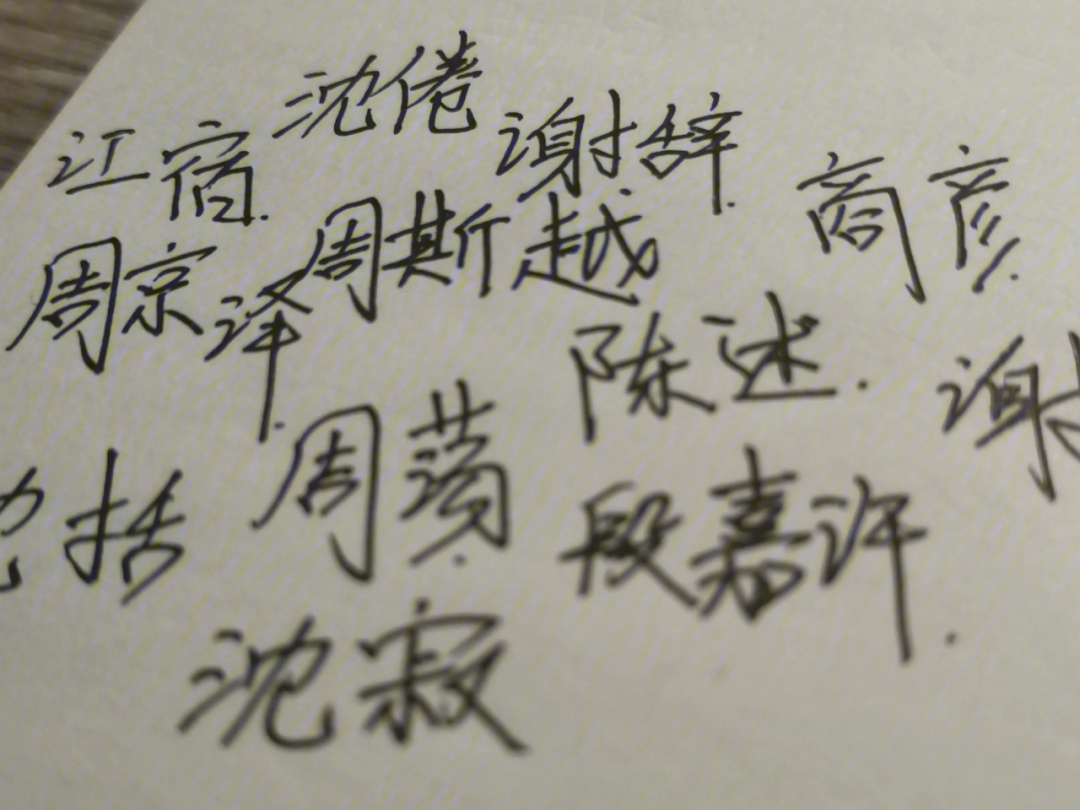 沈倦
江宿.
谢辞.
商彦.
周京泽.
周斯越
陈述.
谢
括
周蒴.
段嘉许.
沈寂